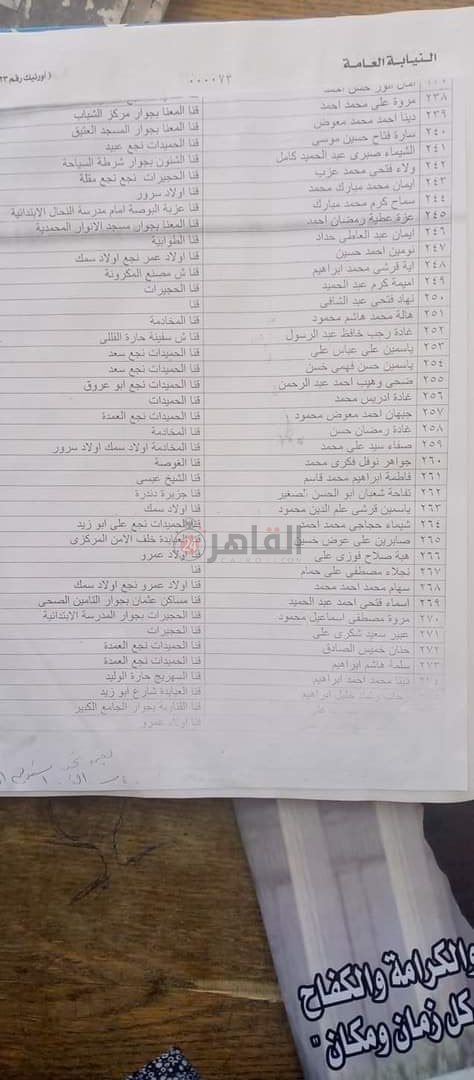 النيابة العامة
٠٠٠٠٧٣
(أورنيك رقم ٢٣
أمان أنور حسن احمد
٢٣٨ مروة على محمد احمد قنا المعنا بجوار مركز الشباب
٢٣٩ دينا احمد محمد معوض قنا المعنا بجوار المسجد العتيق
٢٤٠ سارة فتاح حسين موسى قنا الحميدات نجع عبيد
٢٤١ الشيماء صبرى عبد الحميد كامل قنا الشئون بجوار شرطة السياحة
٢٤٢ ولاء فتحى محمد عزب قنا الحجيرات نجع نجع مقلة
٢٤٣ ايمان محمد مبارك محمد قنا اولاد سرور
٢٤٤ سماح كرم محمد مبارك قنا عزبة البوصة امام مدرسة النحال الابتدائية
٢٤٥ عزة عطية رمضان احمد قنا المعنا بجوار مسجد الانوار المحمدية
٢٤٦ ايمان عبد العاطى حداد قنا الطوابية
٢٤٧ نومين احمد حسين قنا اولاد عمر نجع اولاد سمك
٢٤٨ اية قرشى محمد ابراهيم قنا ش مصنع المكرونة
٢٤٩ اميمة كرم عبد الحميد قنا الحجيرات
٢٥٠ نهاد فتحى عبد الشافى قنا
٢٥١ هالة محمد هاشم محمود قنا المخادمة
٢٥٢ غادة رجب حافظ عبد الرسول قنا ش سفينة حارة القللى
٢٥٣ ياسمين على عباس على قنا الحميدات نجع سعد
٢٥٤ ياسمين حسن فهمى حسن قنا الحميدات نجع سعد
٢٥٥ ضحى وهيب احمد عبد الرحمن قنا الحميدات نجع ابو عروق
٢٥٦ غادة ادريس محمد قنا الحميدات
٢٥٧ جيهان احمد معوض محمود قنا الحميدات نجع العمدة
٢٥٨ غادة رمضان حسن قنا المخادمة
٢٥٩ صفاء سيد على محمد قنا المخادمة اولاد سمك اولاد سرور
٢٦٠ جواهر نوفل فكرى محمد قنا الغوصة
٢٦١ فاطمة ابراهيم محمد قاسم قنا الشيخ عيسى
٢٦٢ تفاحة شعبان ابو الحسن الصغير قنا جزيرة دندرة
٢٦٣ ياسمين قرشى علم الدين محمود قنا اولاد سمك
٢٦٤ شيماء حجاجى محمد احمد قنا الحميدات نجع على ابو زيد
٢٦٥ صابرين على عوض حسين قنا العبابدة خلف الامن المركزى
٢٦٦ هبة صلاح فوزى على قنا اولاد عمرو
٢٦٧ نجلاء مصطفى على حمام قنا
٢٦٨ سهام محمد احمد محمد قنا اولاد عمرو نجع اولاد سمك
٢٦٩ اسماء فتحى احمد عبد الحميد قنا مساكن عثمان بجوار التامين الصحى
٢٧٠ مروة مصطفى اسماعيل محمود قنا الحجيرات بجوار المدرسة الابتدائية
٢٧١ عبير سعيد شكرى على قنا الحجيرات
٢٧٢ حنان خميس الصادق قنا الحميدات نجع العمدة
٢٧٣ سلمة هاشم ابراهيم قنا الحميدات نجع العمدة
٢٧٤ دينا محمد احمد ابراهيم قنا السهريج حارة الوليد
رحاب رشاد خليل ابراهيم قنا العبابدة شارع ابو زيد
على قنا القناوية بجوار الجامع الكبير
قنا اولاد عمرو
القاهرة 24
CAIRO24.COM
والكرامة والكفاح
كل زمان ومكان "